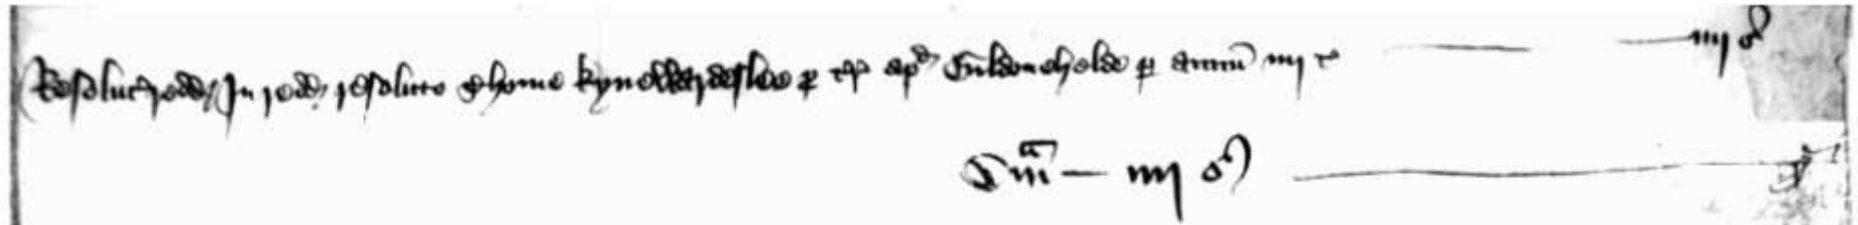 Resoluc' redd' / In redd' resoluto Thome kynardesley p' t'r' ap'd Guldonehelde p' annū iiij d iiij d
Sma — iiij d